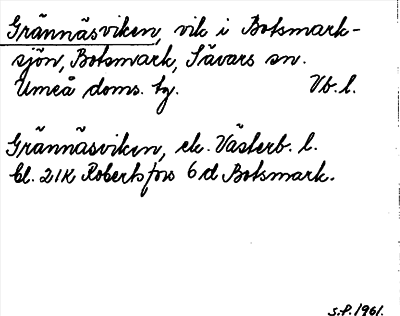 Grännäsviken, vik i Botsmark-
sjön, Botsmark, Sävars sn.
Umeå doms. tg. Vb. l.
Grännäsviken, ek. Västerb. l.
bl. 21K Robertsfors 6d Botsmark.
S.P. 1961.